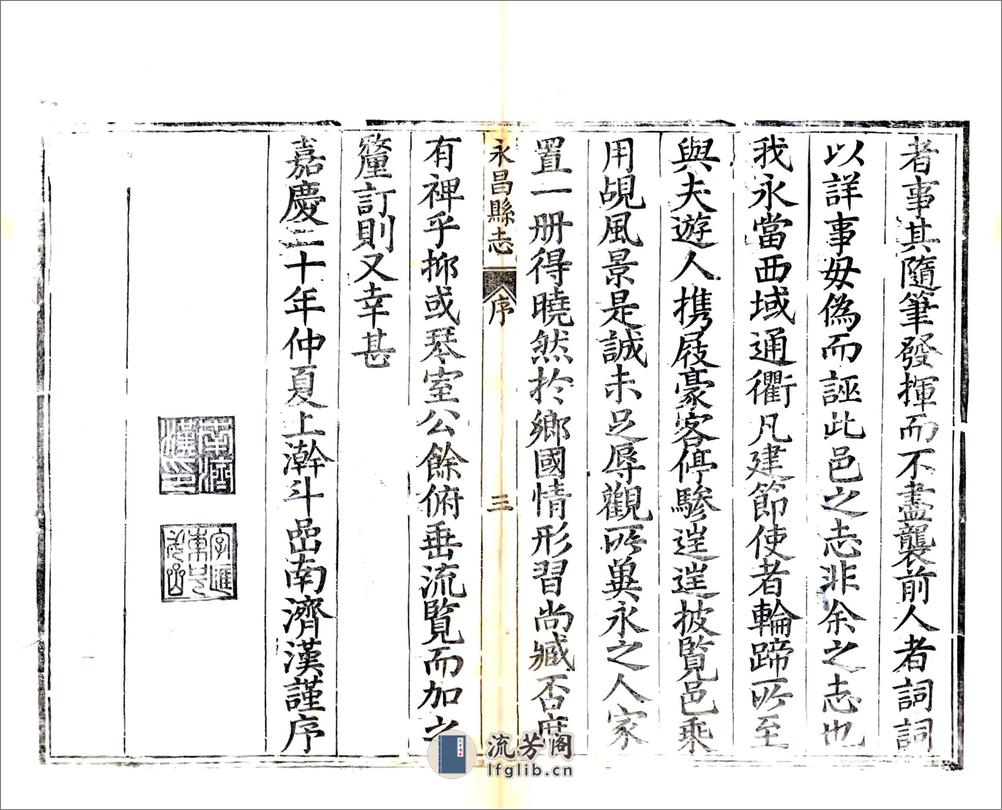 者事其隨筆發揮而不盡襲前人者詞詞
以詳事毋偽而誣此邑之志非余之志也
我永當西域通衢凡建節使者輪蹄所至
與夫遊人携屐豪客停驂遑遑披覧邑乘
用覘風景是誠未足辱觀所兾永之人家
置一册得曉然扵鄉國情形習尚臧否庶
永昌縣志
序
三
有裨乎抑或琴室公餘俯垂流覧而加之
釐訂則又幸甚
嘉慶二十年仲夏上澣斗嵒南濟漢謹序
南濟漢印
字匯東
流芳阁
lfglib.cn